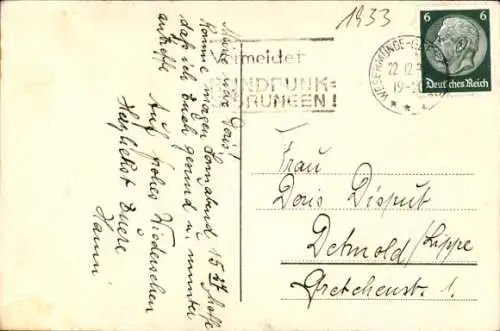 1933
6 6
Deutsches Reich
WESERMÜNDE-G
22.12.
19-20
Vermeidet
RUNDFUNK=
STÖRUNGEN!
Meine liebe Doris!
Komme morgen Sonnabend 15.27 Hoffe
daß ich Euch gesund u. munter
antreffe
Auf frohes Wiedersehen
Herzlichst Euere
Hanni
Frau
Doris Disput
Detmold/Lippe
Gretchenstr. 1.